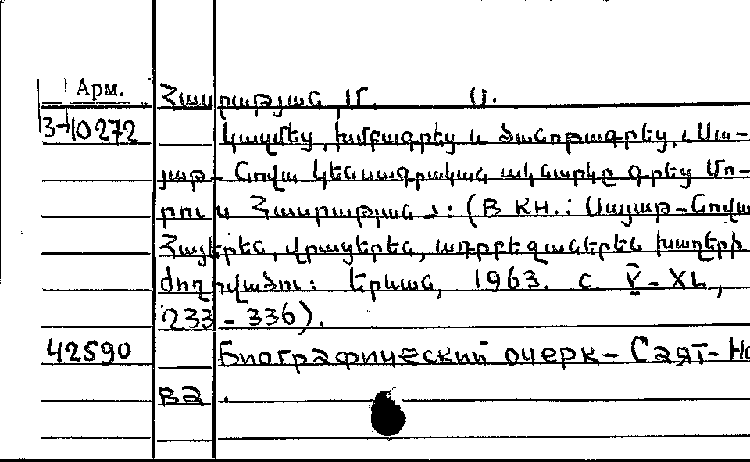 Арм.
Հասրաթյան Մ. Ս.
3-10272
Կազմեց, խմբագրեց և ծանոթագրեց, «Սա-
յաթ-Նովա կենսագրական ակնարկը գրեց Մո-
րուս Հասրաթյան»: (В кн.: Սայաթ-Նովա
Հայերեն, վրացերեն, ադրբեջաներեն խաղերի
ժողովածու: Երևան, 1963. с. V-XL,
233-336).
42590
Биографический очерк - Саят-Но
ва.